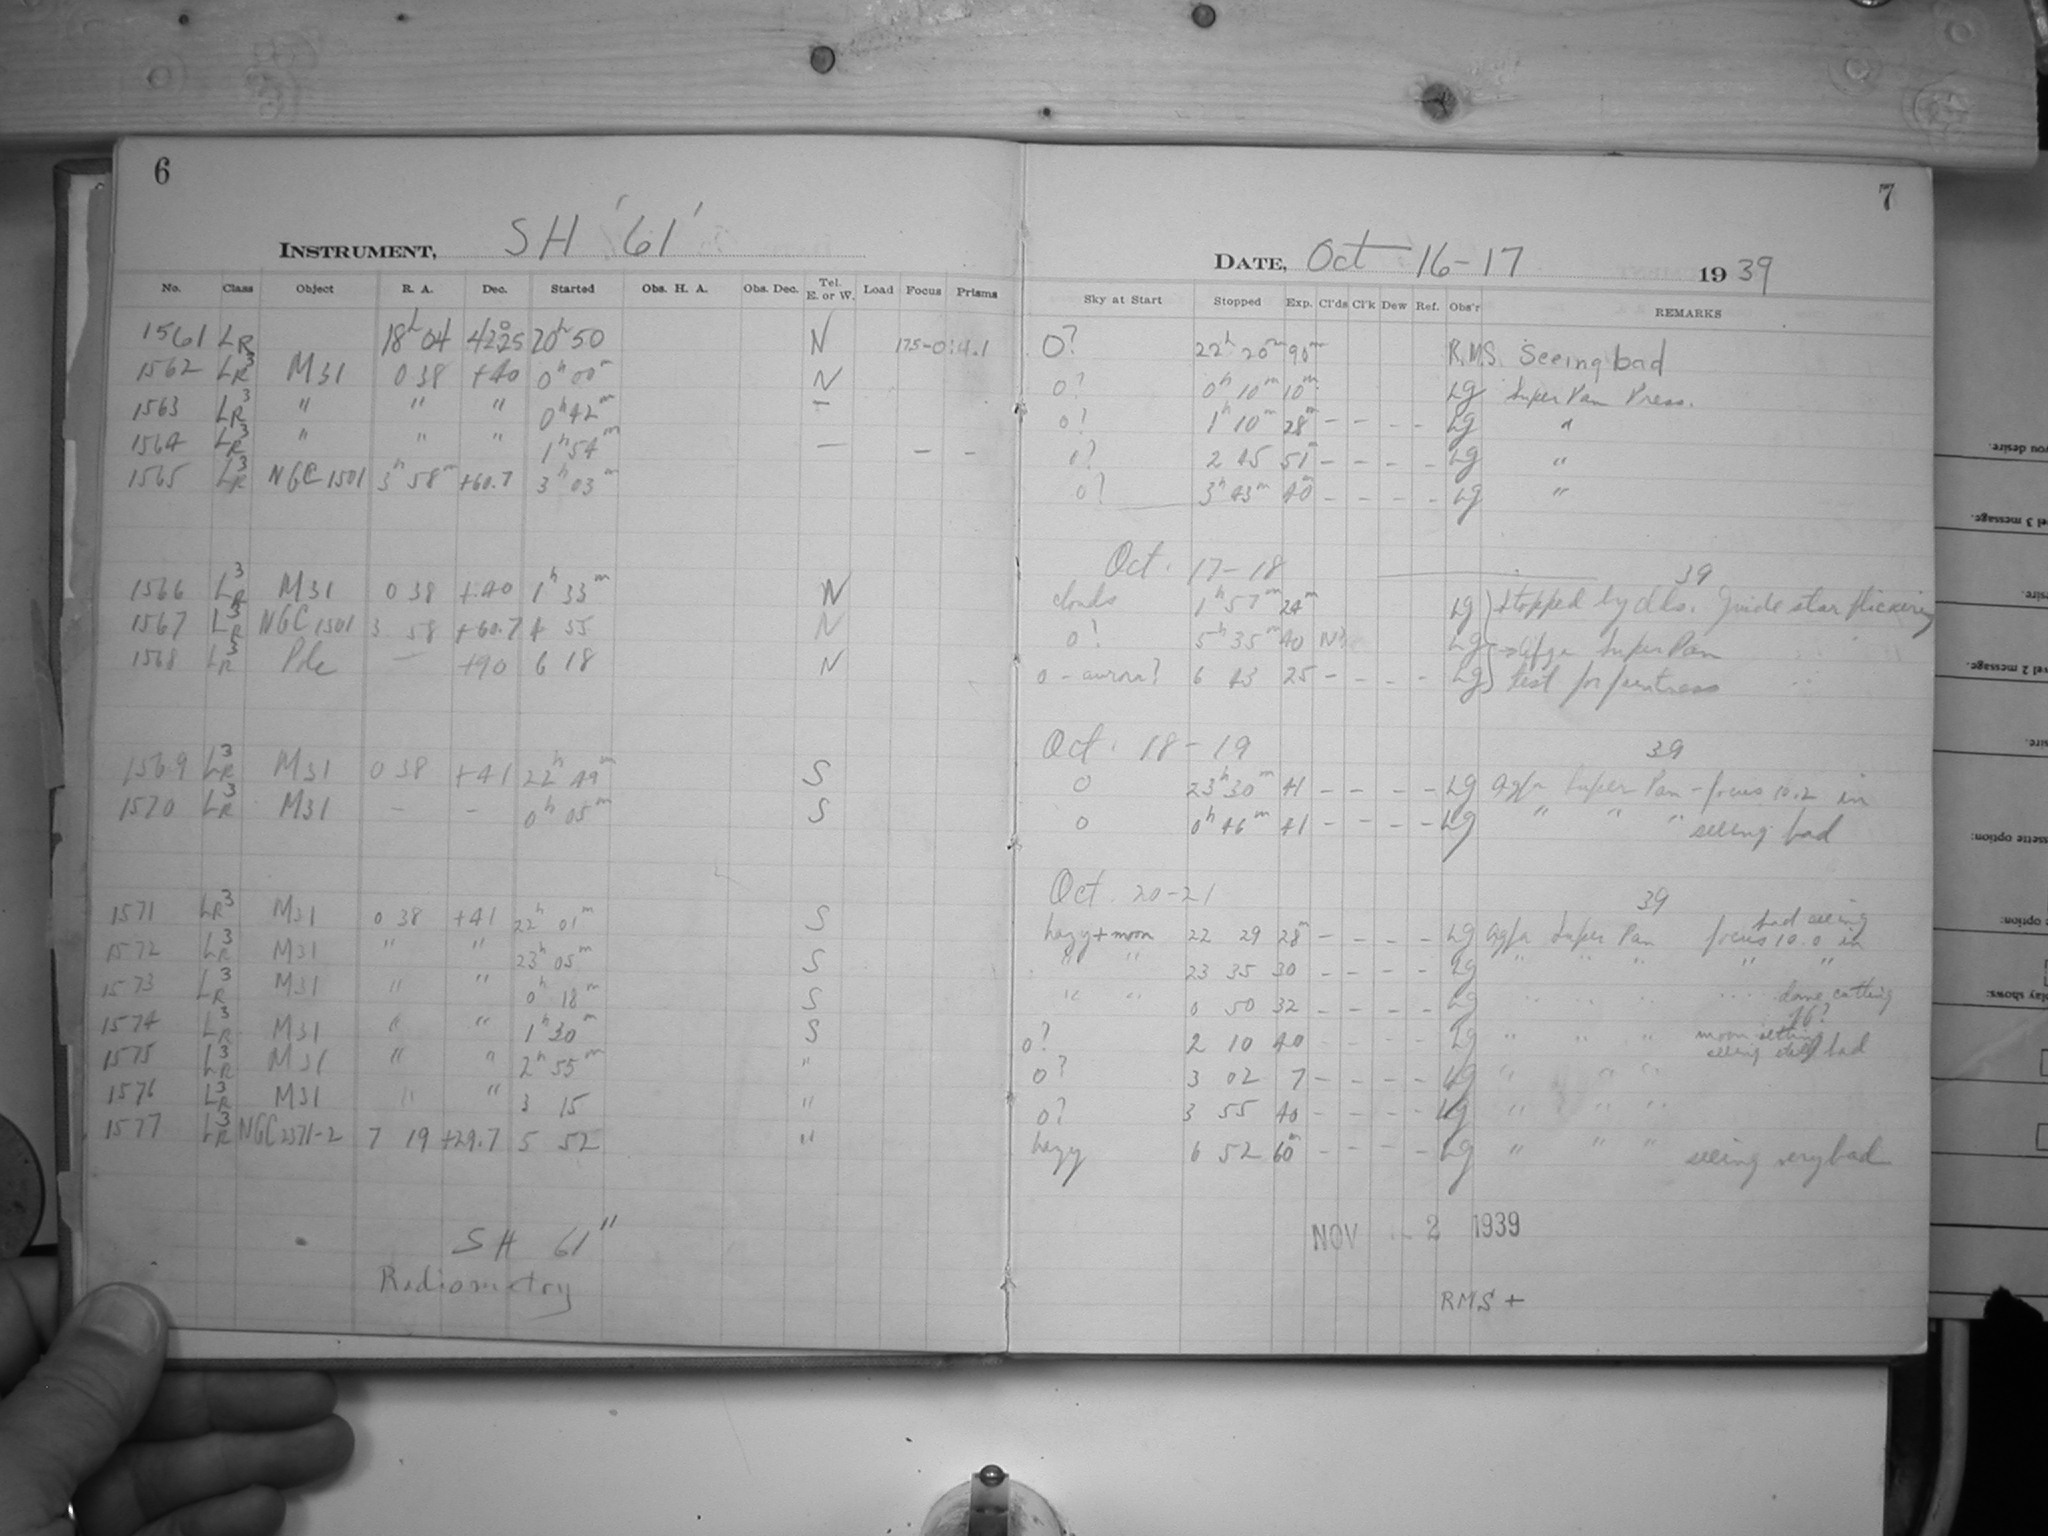 6
INSTRUMENT, SH '61'
No. Class Object R. A. Dec. Started Obs. H. A. Obs. Dec. Tel. E. or W. Load Focus Prisms
1561 LR 18h 04 4225 20h 50 N
1562 LR3 M31 0 38 +40 0h 00m N
1563 LR3 " " " 0h 42m –
1564 LR3 " " " 1h 54m — – –
1565 LR3 NGC 1501 3h 58m +60.7 3h 03m
1566 LR3 M31 0 38 +40 1h 33m N
1567 LR3 NGC 1501 3 58 +60.7 4 55 N
1568 LR3 Pole — +90 6 18 N
1569 LR3 M31 0 38 +41 22h 49m S
1570 LR3 M31 – – 0h 05m S
1571 LR3 M31 0 38 +41 22h 01m S
1572 LR3 M31 " " 23h 05m S
1573 LR3 M31 " " 0h 18m S
1574 LR3 M31 " " 1h 30m S
1575 LR3 M31 " " 2h 55m "
1576 LR3 M31 " " 3 15 "
1577 LR3 NGC 2371-2 7 19 +29.7 5 52 "
SH 61"
Radiometry
7
DATE, Oct 16-17 1939
Sky at Start Stopped Exp. Cl'ds Cl'k Dew Ref. Obs'r REMARKS
0? 22h 20m 90m R.M.S. Seeing bad
0? 0h 10m 10m Lg Super Pan Press.
0? 1h 10m 28m – – – – Lg "
0? 2 45 51m – – – – Lg "
0? 3h 43m 40m – – – – Lg "
Oct. 17-18 39
clouds 1h 57m 24m Lg stopped by clds. Guide star flickering
0? 5h 35m 40 Lg Agfa Super Pan
0 - aurora? 6 43 25 – – – – Lg test for
Oct. 18-19 39
0 23h 30m 41 – – – – Lg Agfa Super Pan - focus 10.2 in
0 0h 46m 41 – – – – Lg " " " seeing bad
Oct. 20-21 39
bad seeing
hazy + moon 22 29 28m – – – – Lg Agfa Super Pan focus 10.0 in
" " 23 35 30 – – – – Lg " " " " "
" " 0 50 32 – – – – Lg " " " " dome cutting
0? 2 10 40 – – – – Lg " " " moon setting
seeing still bad
0? 3 02 7 – – – – Lg " " "
0? 3 55 40 – – – – Lg " " "
hazy 6 52 60m – – – – Lg " " " seeing very bad
NOV 2 1939
RMS +
you desire.
el 3 message.
sire.
vel 2 message.
sire.
ssette option:
option:
play shows: